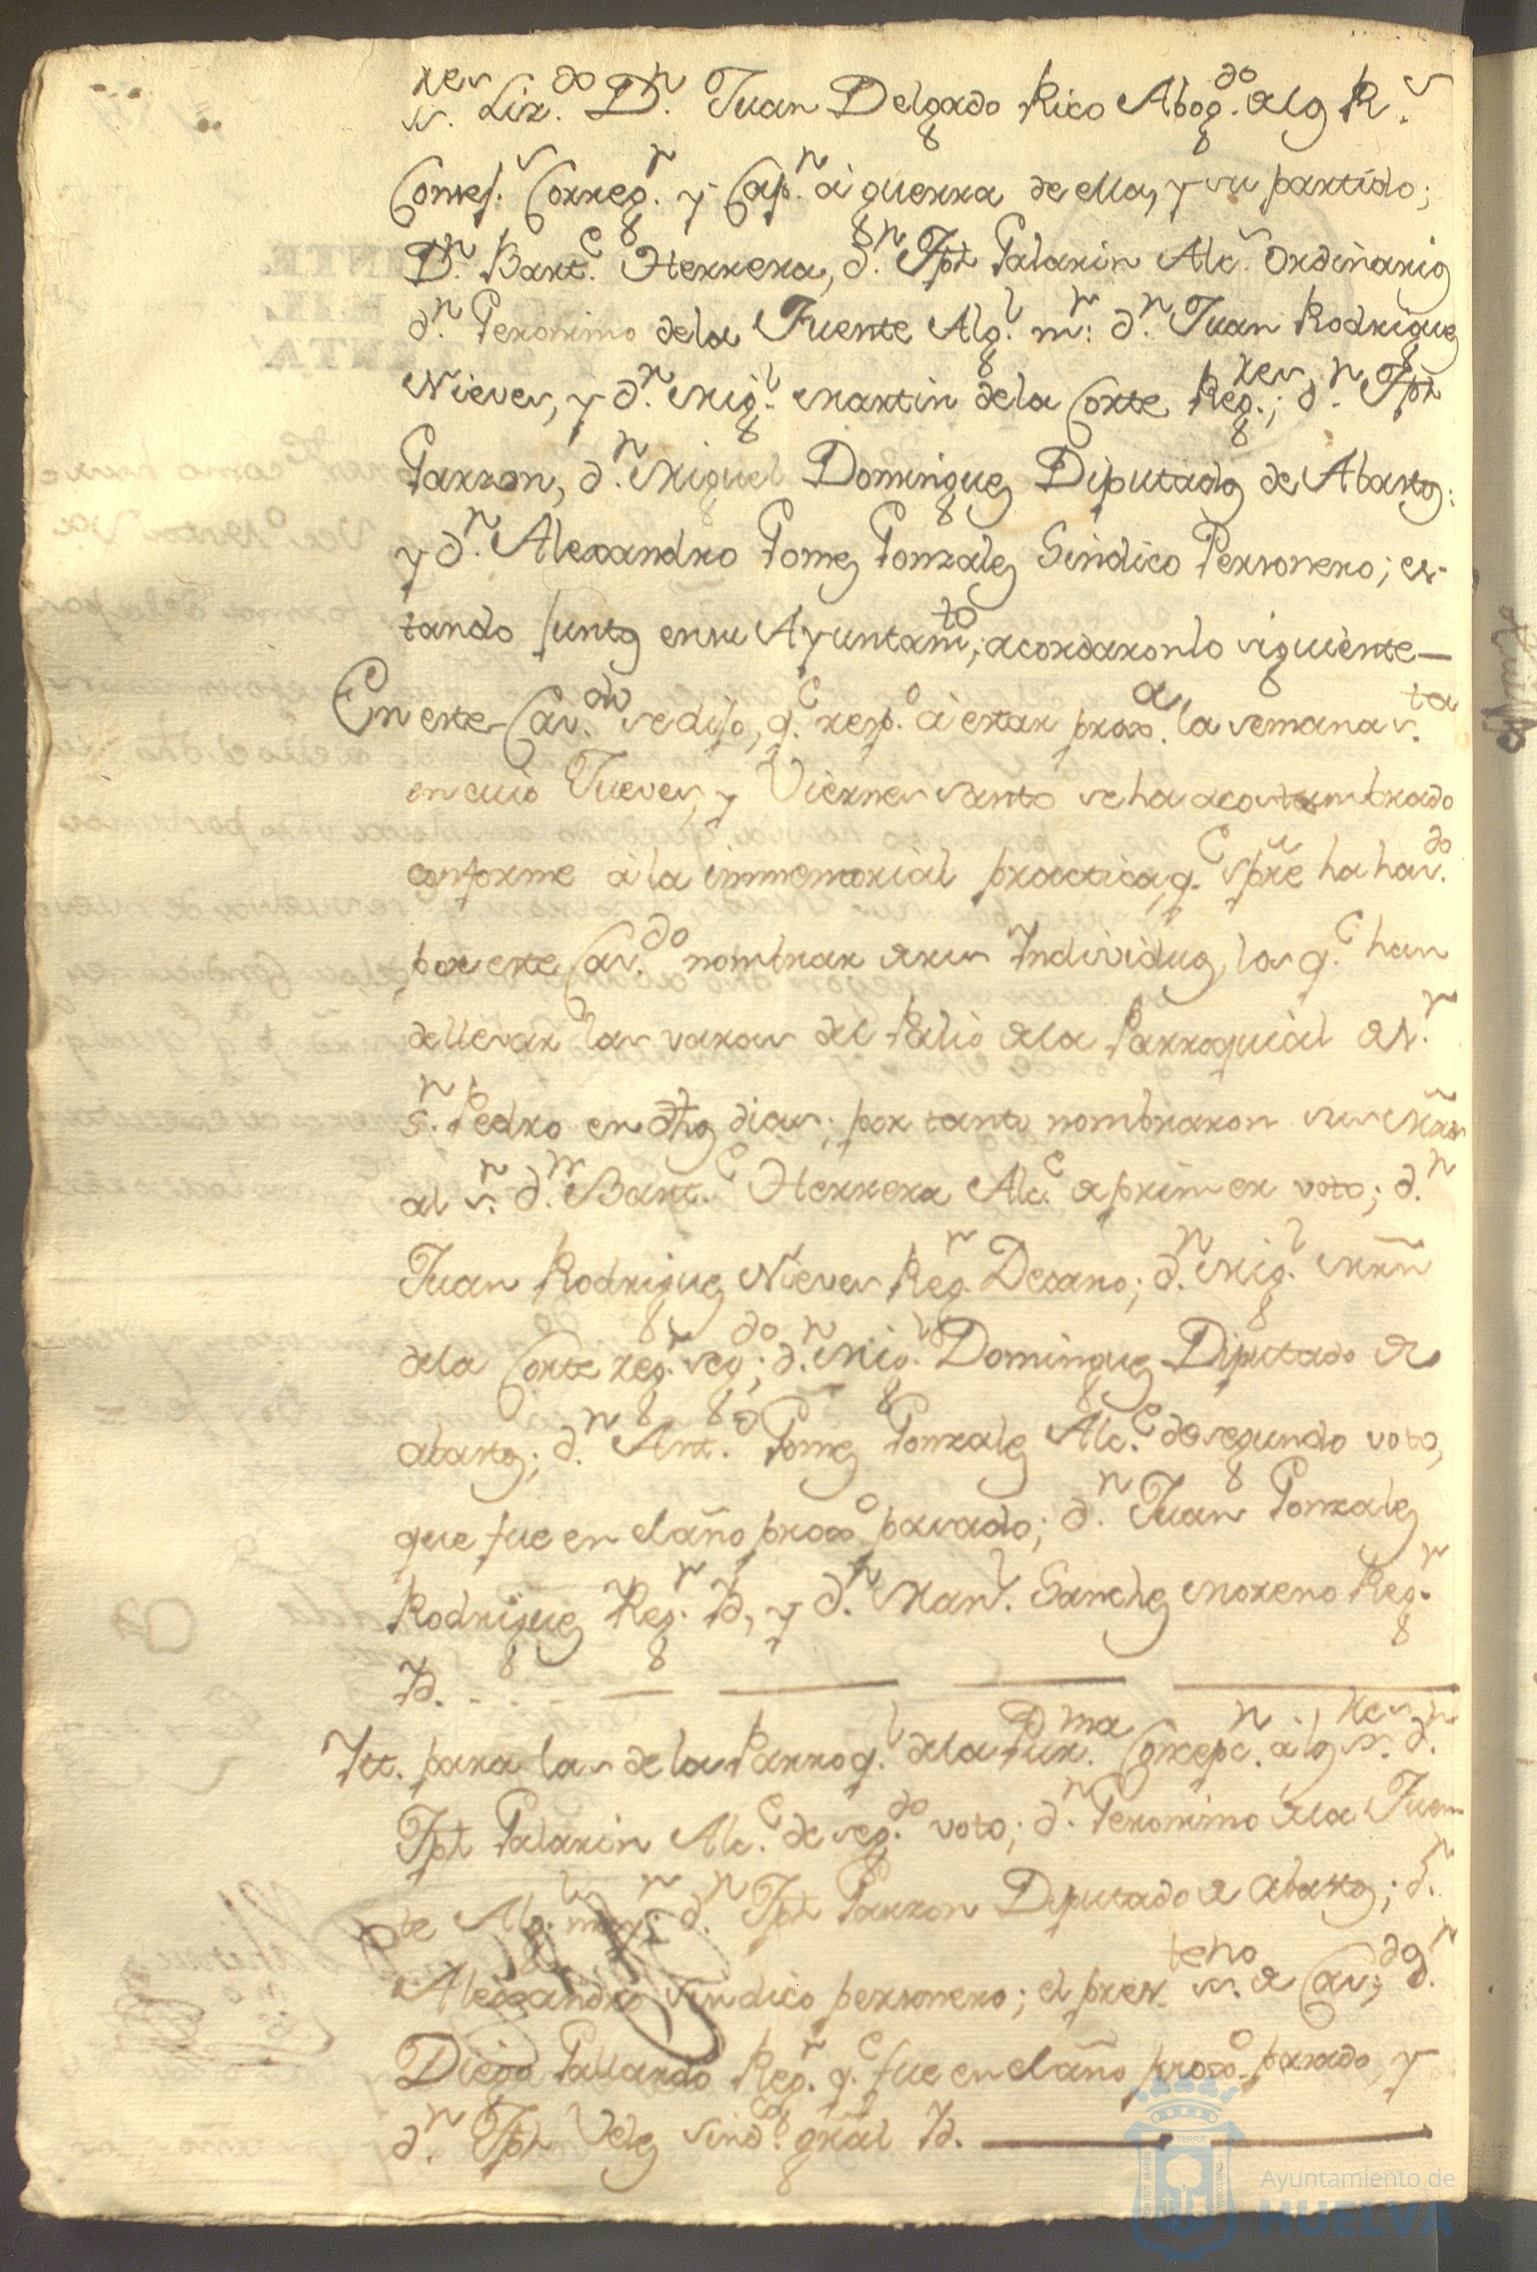 s.res Liz.do D.n Juan Delgado Rico Abog.do de los R.s
Consej.s Correg.r y Cap.n à guerra de ella, y su partido;
D.n Bart.e Herrera, d.n Jph Galarin Alc.s ordinarios
d.n Geronimo de la Fuente Alg.l m.r: d.n Juan Rodriguez
Nieves, y d.n Mig.l Martin de la Corte Reg.res; d.n Jph
Garzon, d.n Miguel Dominguez Diputados de Abastos:
y d.n Alexandro Gomez Gonzalez Sindico Personero; es-
tando juntos en su Ayuntam.to; acordaron lo siguiente—
En este Cav.do se dijo, q.e resp.o à estar prox.a la semana s.ta
en cuio Jueves, y Viernes santo se ha acostumbrado
conforme à la immemorial practica, q.e spre ha hav.do
por este Cav.do nombrar de sus Individuos, los q.e han
de llevar las varas del Palio de la Parroquial de S.r
S.n Pedro en dhos dias; por tanto nombraron sus Mrds
al s.r d.n Bart.e Herrera Alc.e de primer voto; d.n
Juan Rodriguez Nieves Reg.r Decano; d.n Mig.l Mrn
de la Corte reg.r seg.do; d.n Mig.l Dominguez Diputado de
abastos; d.n Ant.o Gomez Gonzalez Alc.e de segundo voto,
que fue en el año prox.o pasado; d.n Juan Gonzalez
Rodriguez Reg.r Yd, y d.n Man.l Sanchez Moreno Reg.r
Yd.
Itt. para las de la Parroq.l de la Pur.ma Concepc.n a los s.res d.n
Jph Galarin Alc.e de seg.do voto; d.n Geronimo de la Fuen-
te Alg.l may.r d.n Jph Garzon Diputado de abastos; d.n
Alexandro Sindico personero; el pres.te s.no de Cav.do; d.n
Diego Gallardo Reg.r q.e fue en el año prox.o pasado, y
d.n Jph Velez Sind.co gral Yd.
Ayuntamiento de
HUELVA